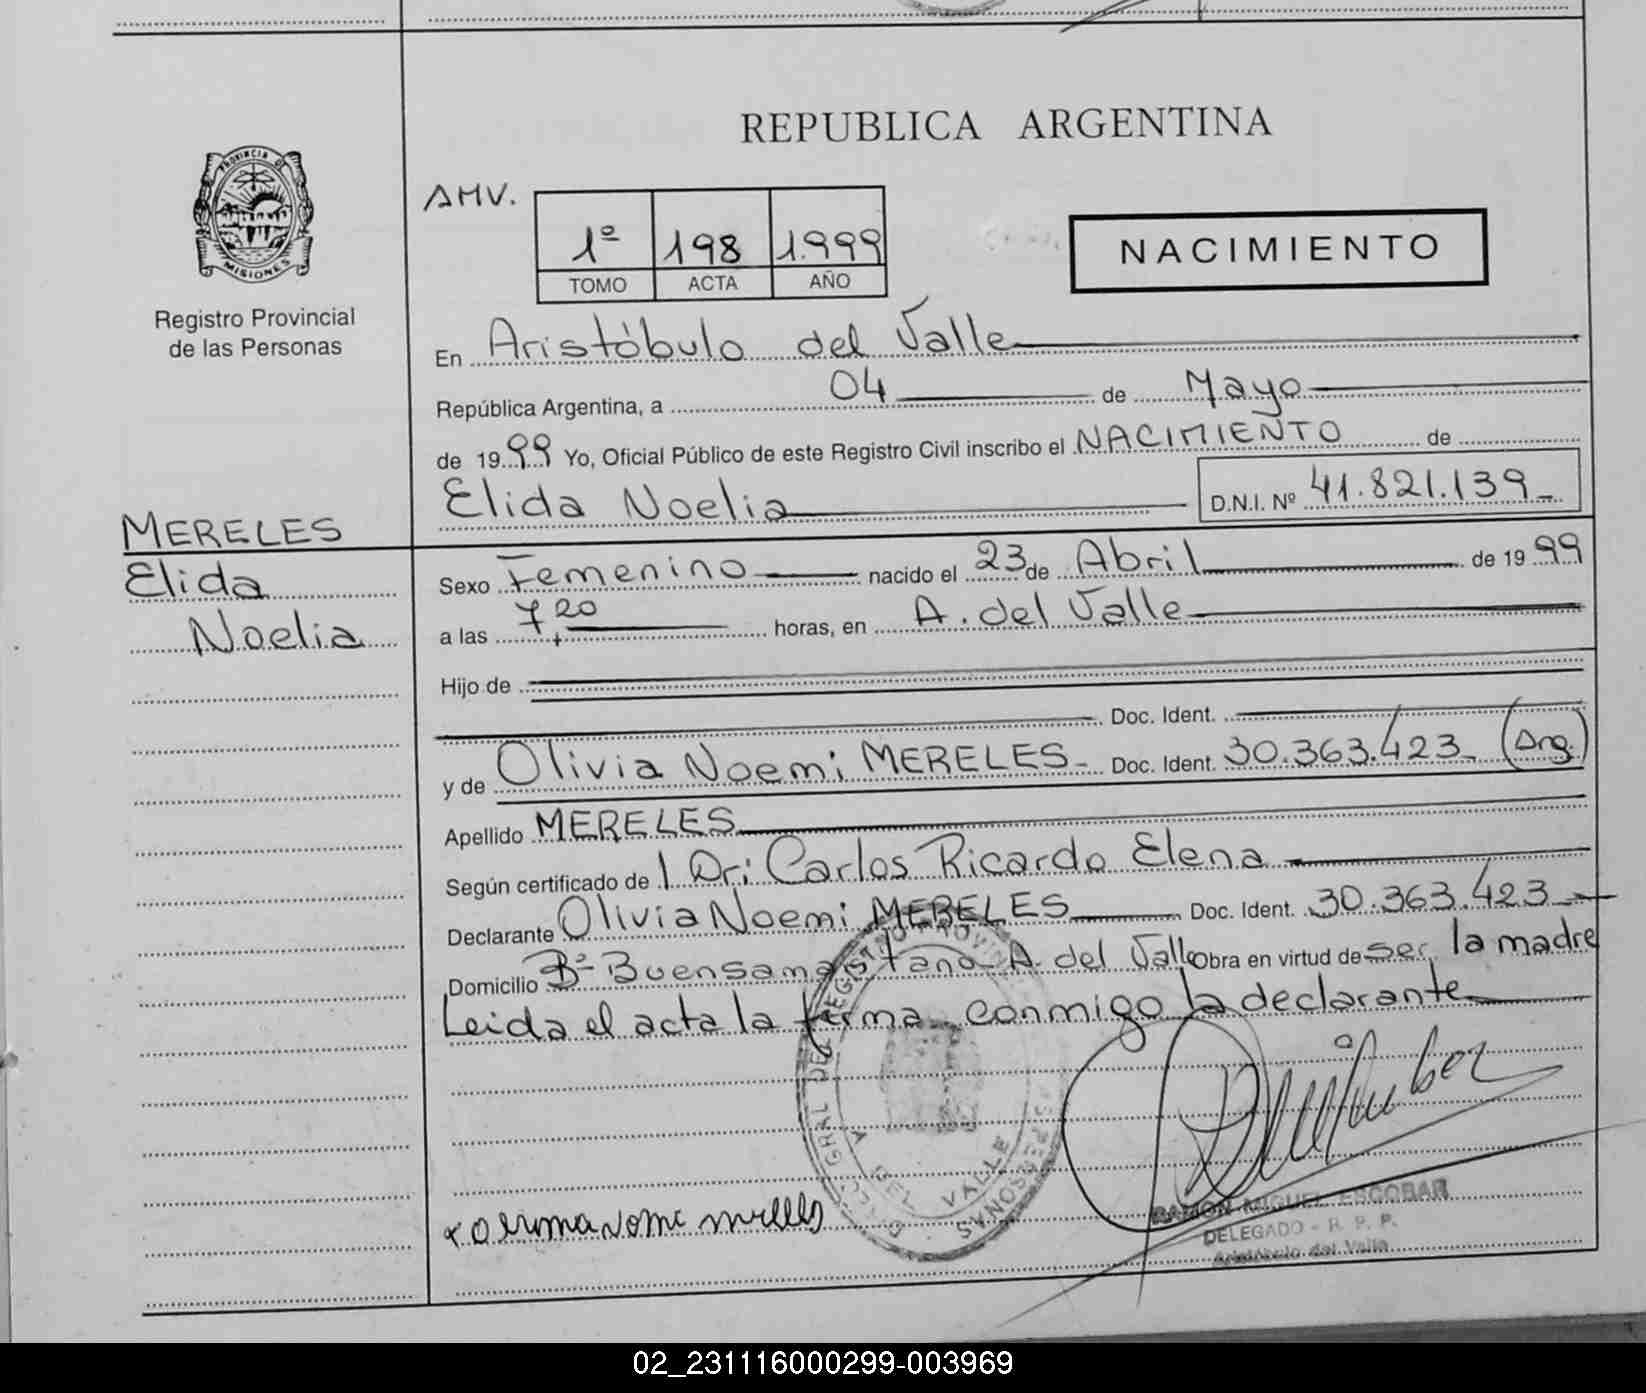 REPUBLICA ARGENTINA
PROVINCIA DE
MISIONES
Registro Provincial
de las Personas
AMV.
1º 198 1.999
TOMO ACTA AÑO
NACIMIENTO
En Aristóbulo del Valle
República Argentina, a 04 de Mayo
de 1999 Yo, Oficial Público de este Registro Civil inscribo el NACIMIENTO de
Elida Noelia D.N.I. Nº 41.821.139_
MERELES
Elida
Noelia
Sexo Femenino nacido el 23 de Abril de 1999
a las 7,20 horas, en A. del Valle
Hijo de
Doc. Ident.
y de Olivia Noemi MERELES- Doc. Ident. 30.363.423_ (Arg.)
Apellido MERELES
Según certificado de 1 Dr: Carlos Ricardo Elena
Declarante Olivia Noemi MERELES Doc. Ident. 30.363.423
Domicilio Bº Buensamaritano A. del Valle Obra en virtud de ser la madre
Leida el acta la firma conmigo la declarante
A DEL VALLE
RAMON MIGUEL ESCOBAR
DELEGADO - R. P. P.
Aristóbulo del Valle
02_231116000299-003969